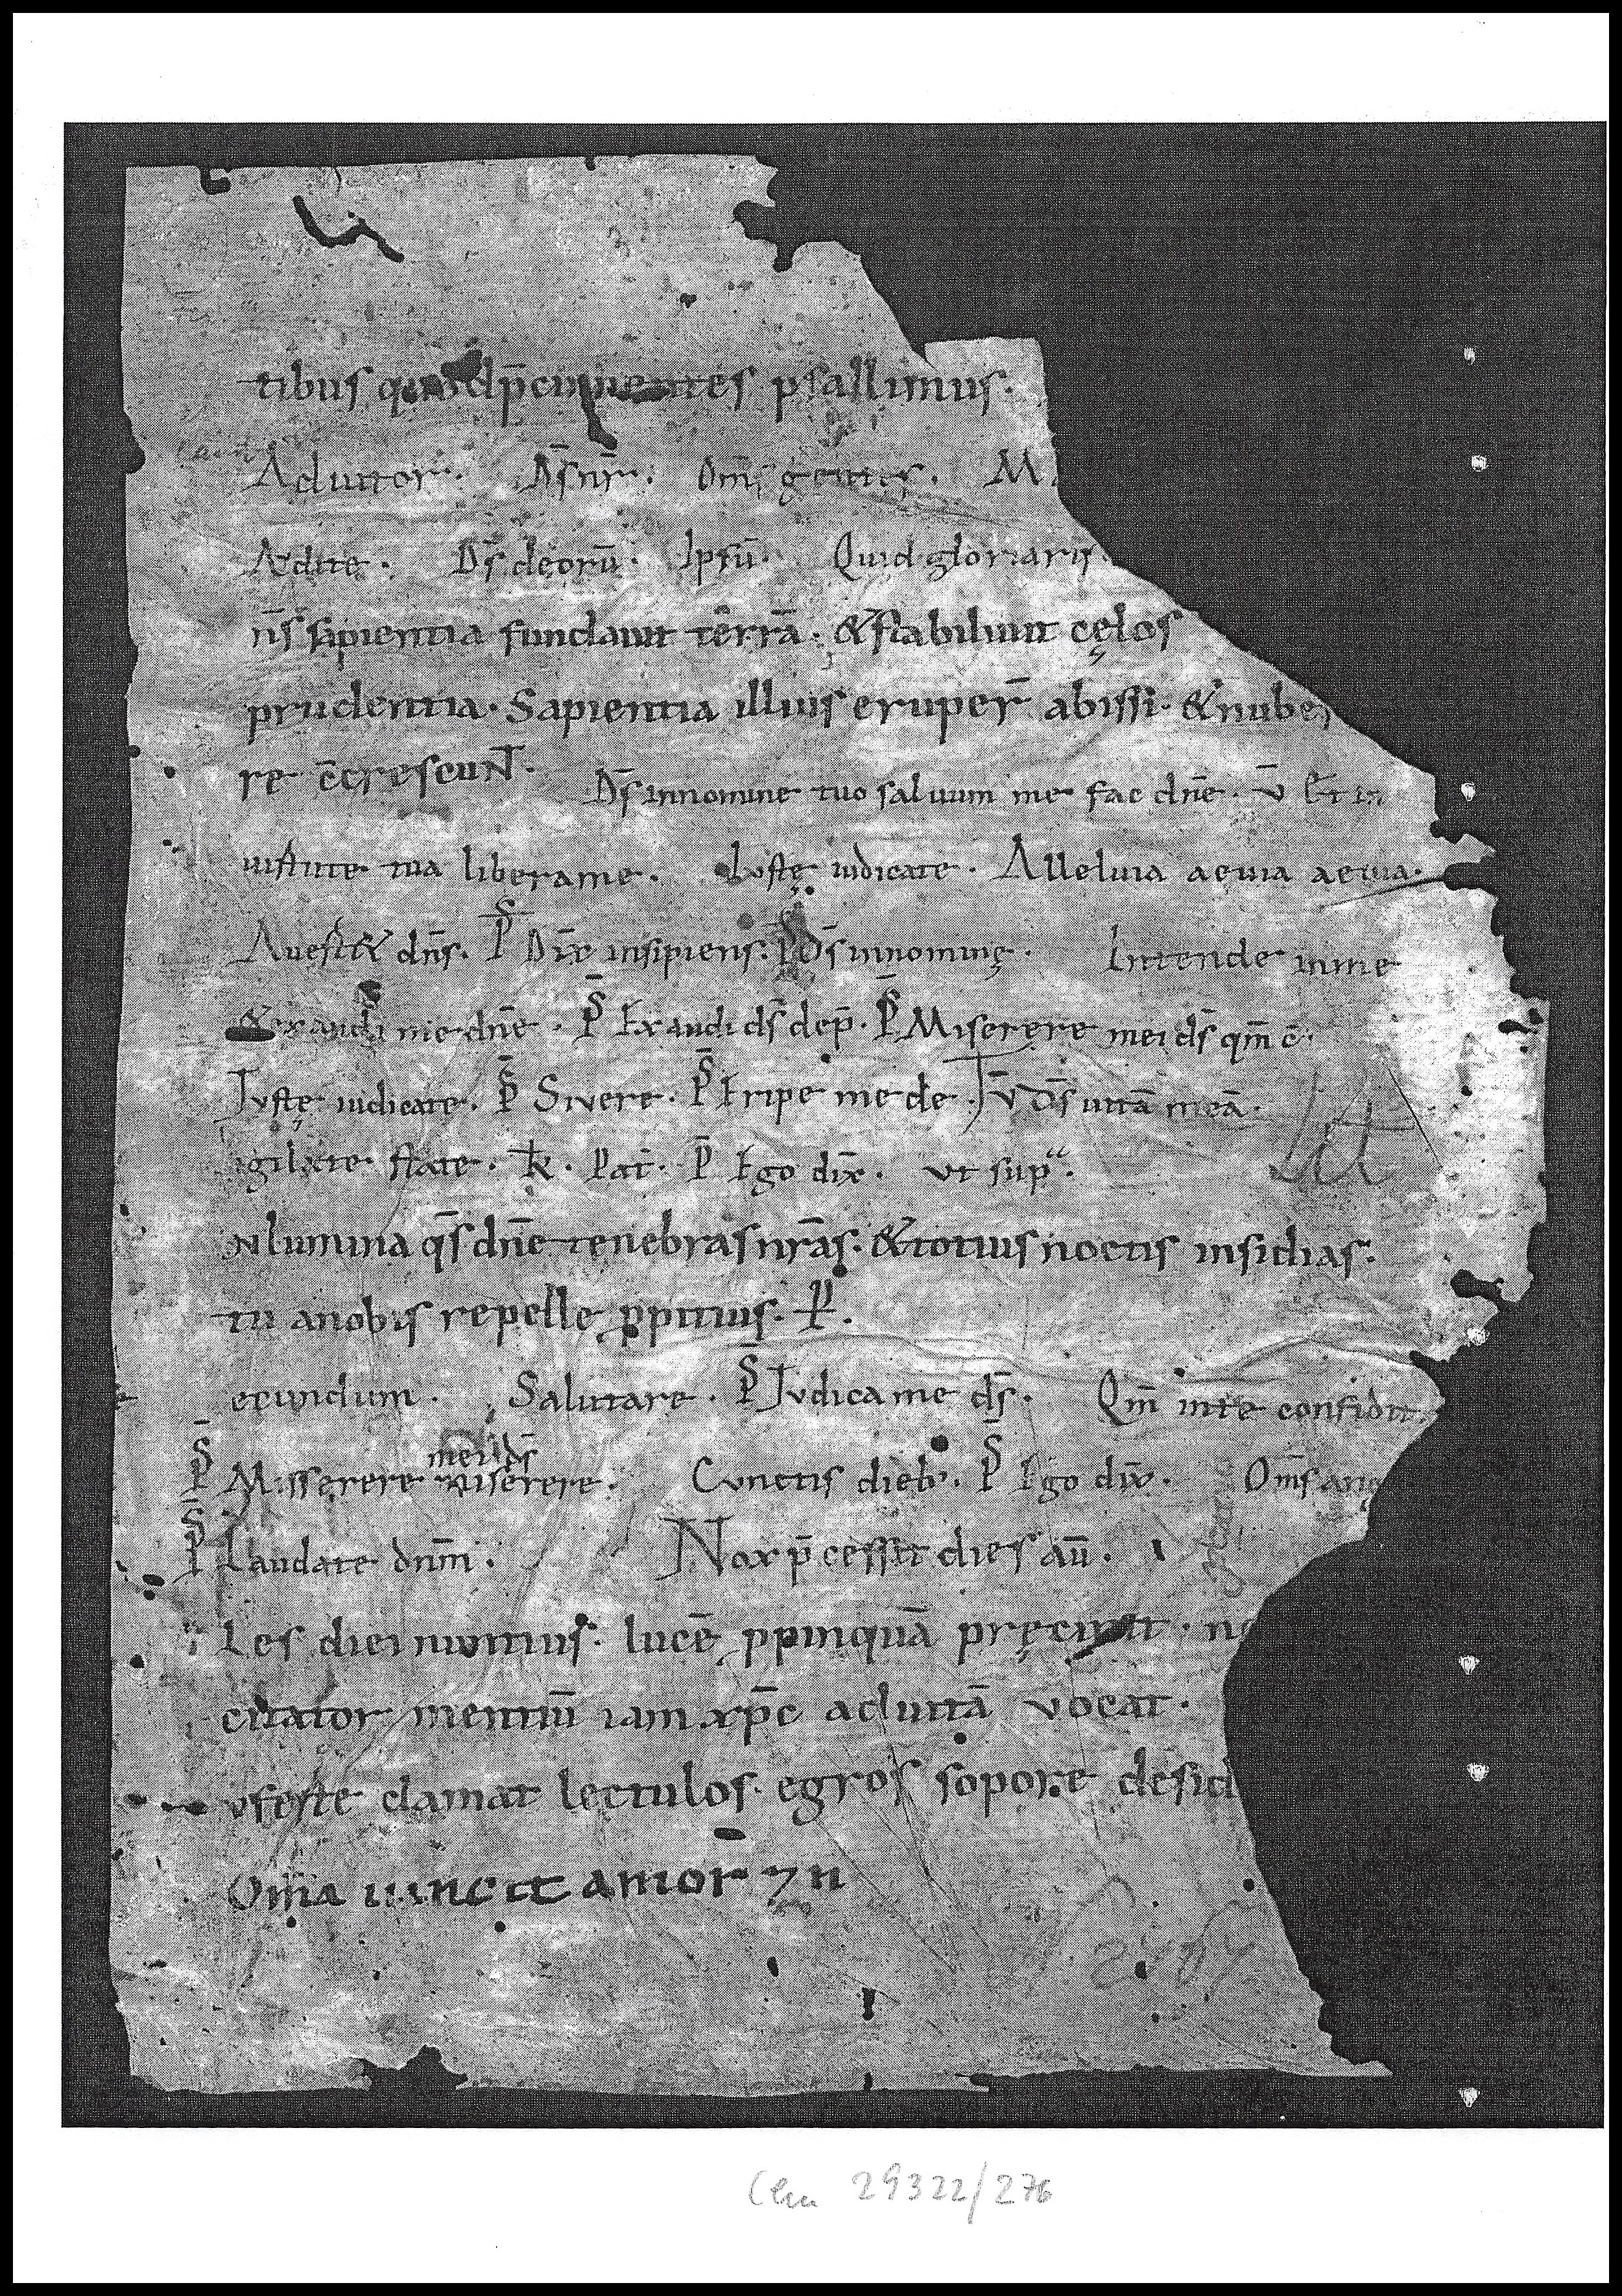 tibus quod p̄cinentes psallimus.
Adiutor. D̄s nr̄. Om̄s gentes. M
Audite. D̄s deorū. Ipsū. Quid gloriaris.
n̄s sapientia fundauit terrā. & stabiliuit cęlos
prudentia. Sapientia illius eruper̄ abissi. & nubes
re c̄crescunt.
D̄s in nomine tuo saluum me fac dn̄e. v̄ Et in
uirtute tua libera me. Iuste iudicate. Alleluia aeuia aeuia.
Auertet dn̄s. P̄S Dix̄ insipiens. P̄S D̄s in nomine. Intende in me
& exaudi me dn̄e. P̄S Exaudi ds̄ dep̄. P̄S Miserere mei ds̄ qm̄ c̄.
Iuste iudicate. P̄S Si uere. P̄S Eripe me de. v̄ D̄s uitā meā.
igilate state. k̄. Pat̄. P̄ Ego dix̄. ut sup̄ᵃ.
Nlumina q̄s dn̄e tenebras nr̄as. & totius noctis insidias.
tu a nobis repelle ꝓpitius. P̄.
ecundum. Salutare. P̄S Iudica me ds̄. Qm̄ in te confidit
mei ds̄
P̄S Misserere miserere. Cunctis dieb;. P̄S Ego dix̄. Om̄s ang
P̄S Laudate dn̄m. Nox p̄cessit dies aū.
Les diei nuntius. lucē ꝓpinquā pręcinit. n
citator mentiū iam xp̄c ad uitā uocat.
ufeṛte clamat lectulos. egros sopore desid
Om̄ia uincit amor 7 n
Clm 29322/276